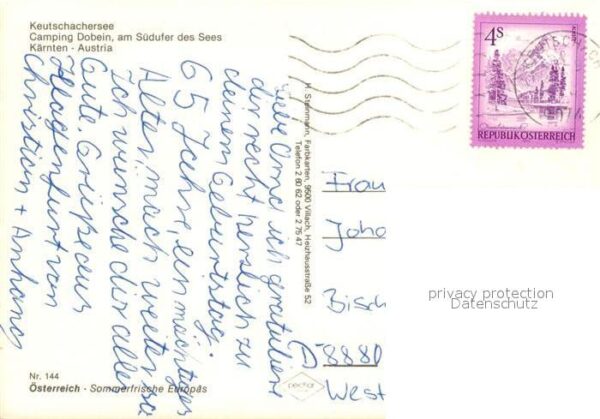 Keutschachersee
Camping Dobein, am Südufer des Sees
Kärnten - Austria
Liebe Oma ich gratuliere
dir recht herzlich zu
deinem Geburtstag.
65 Jahre, ein mächtiges
Alter, mach weiter so
Ich wünsche dir alles
Gute. Grüße aus
Klagenfurt von
Christian + Anhang
Nr. 144
Österreich - Sommerfrische Europas
H. Steinmann, Farbkarten, 9500 Villach, Heizhausstraße 52
Telefon 2 60 62 oder 2 75 47
4S
REPUBLIK ÖSTERREICH
Frau
Joho
Bisch
D-8880
West
privacy protection
Datenschutz